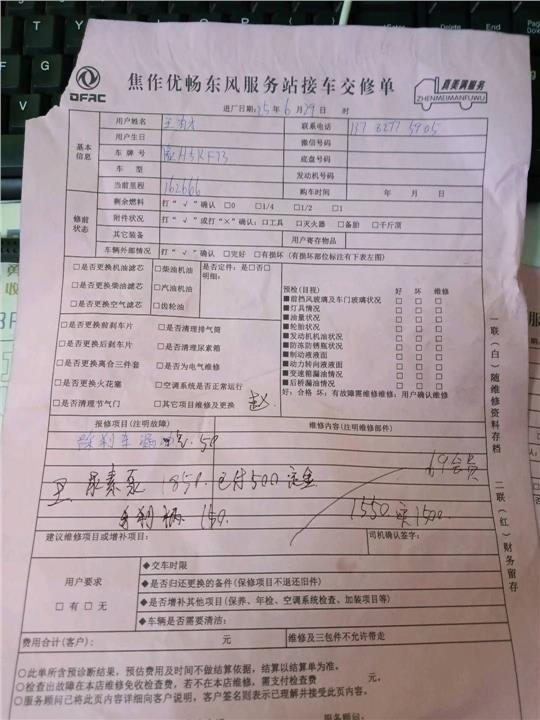 DFAC
焦作优畅东风服务站接车交修单
真美满服务
ZHENMEIMANFUWU
进厂日期：25年6月29日 时
基本信息
用户姓名 联系电话
用户生日 微信号码
车牌号 底盘号码
车型 发动机号码
当前里程 162666 购车时间 年 月 日
修前状态
剩余燃料 打“√”确认 □0 □1/4 □1/2 □1
附件状况 打“√”或打“×”确认：□工具 □灭火器 □备胎 □千斤顶
其它装备 用户寄存物品
车辆外部情况 打“√”确认 □完好 □有损坏（有损坏部位标注有下表左图）
□是否更换机油滤芯 □柴油机油 是否定件：是□否□
□是否更换柴油滤芯 □汽油机油 明细：
□是否更换空气滤芯 □齿轮油
□是否更换前刹车片 □是否清理排气筒
□是否更换后刹车片 □是否清理尿素箱
□是否更换离合三件套 □是否为电气维修
□是否更换火花塞 □空调系统是否正常运行
□是否清理节气门 □其它项目维修及更换 赵
预检(目视) 好 坏 维修
■前挡风玻璃及车门玻璃状况 □ □ □
■灯具情况 □ □ □
■油量状况 □ □ □
■轮胎状况 □ □ □
■发动机机油状况 □ □ □
■防冻防锈瓶状况 □ □ □
■制动液液面 □ □ □
■动力转向液液面 □ □ □
■变速箱漏油情况 □ □ □
■后桥漏油情况 □ □ □
好：合格 坏：有故障需维修维修：用户确认维修
报修项目(注明故障) 维修内容(注明维修部件)
刹车漏 50
尿素泵 1850 已付500定金 69会员
手刹柄 150 1550 收1500
建议维修项目或增补项目： 司机确认签字：
用户要求
□有 □无
◆交车时限
◆是否归还更换的备件（保修项目不退还旧件）
◆是否增补其他项目（保养、年检、空调系统检查、加装项目等）
◆车辆是否需要清洁：
费用合计(客户)： 元 维修及三包件不允许带走
○此单所含预诊断结果，预估费用及时间不做结算依据，结算以结算单为准。
○检查出故障在本店维修免收检查费，若不在本店维修，需支付检查费 元。
○服务顾问已将此页内容详细向客户说明，客户签名则表示已理解并接受此页内容。
服务顾问：
一联（白）随维修资料存档
二联（红）财务留存